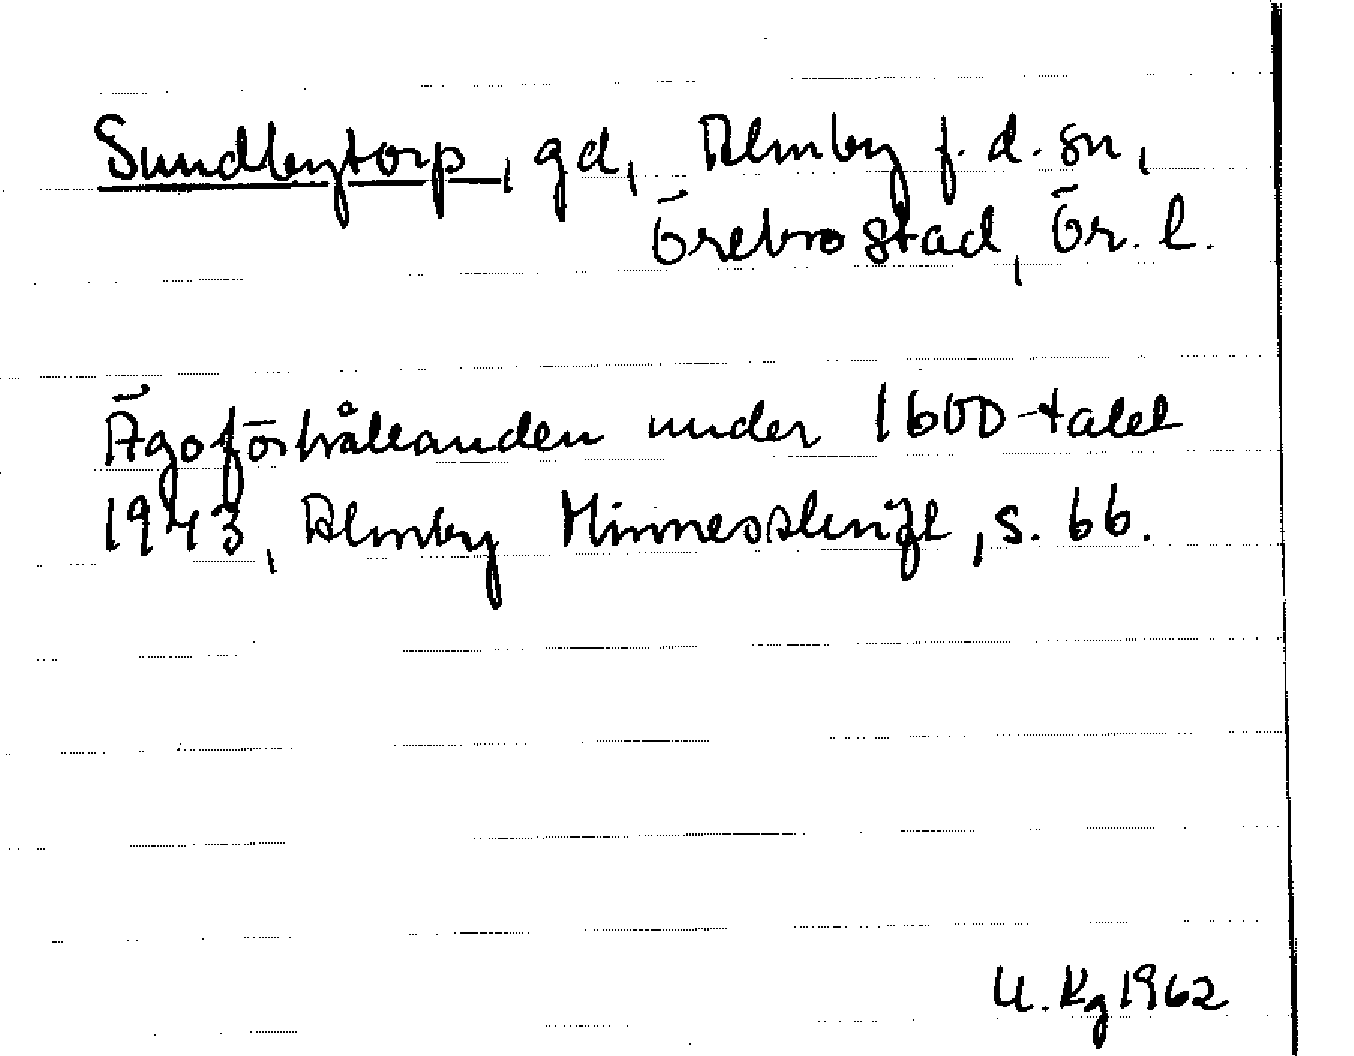 Sundbytorp, gd, Almby f. d. sn,
Örebro stad, Ör. l.
Ägoförhållanden under 1600-talet
1943, Almby Minnesskrift, s. 66.
U. Kg 1962